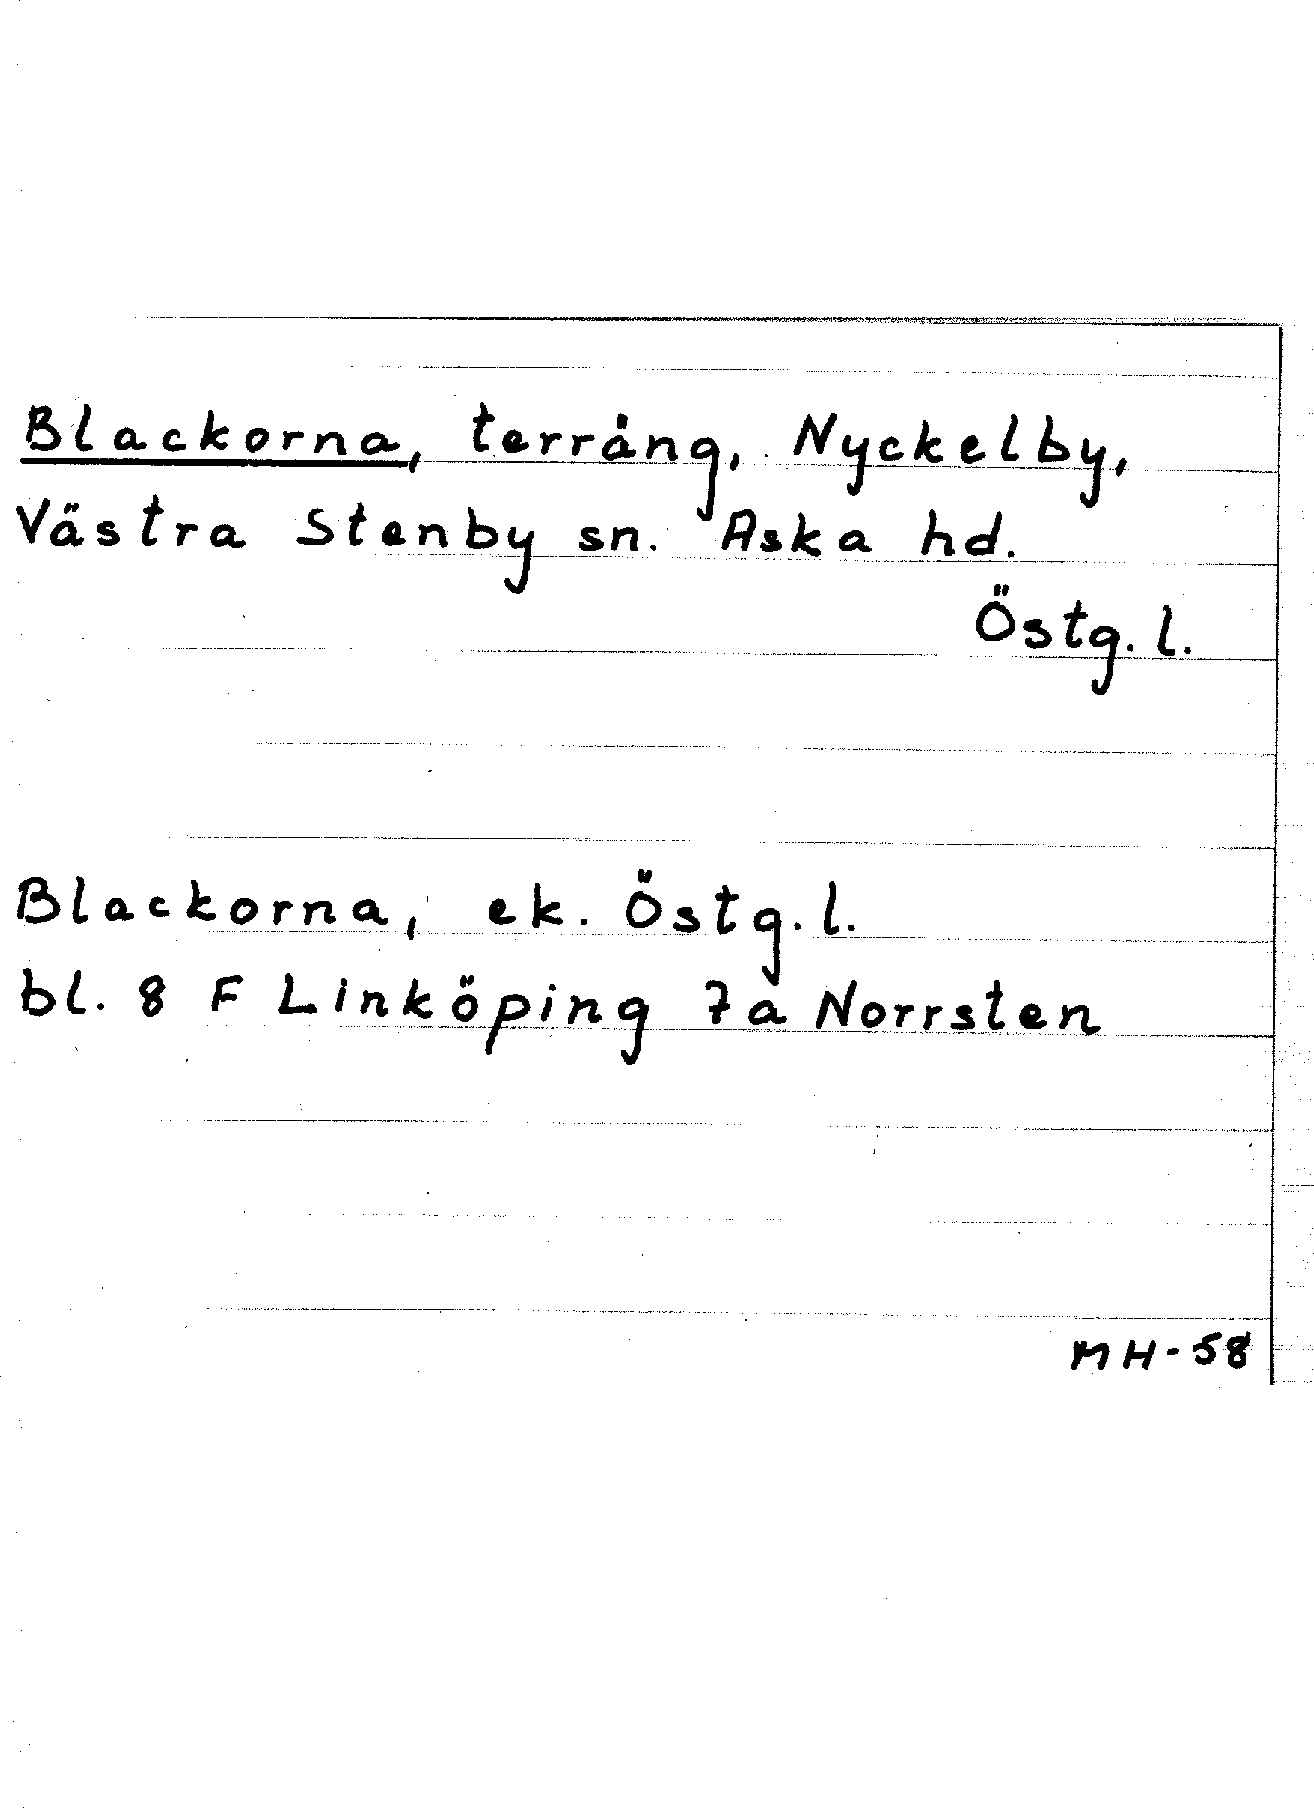 Blackorna, terräng, Nyckelby,
Västra Stenby sn. Aska hd.
Östg. l.
Blackorna, ek. Östg. l.
bl. 8 F Linköping 7a Norrsten
MH-58